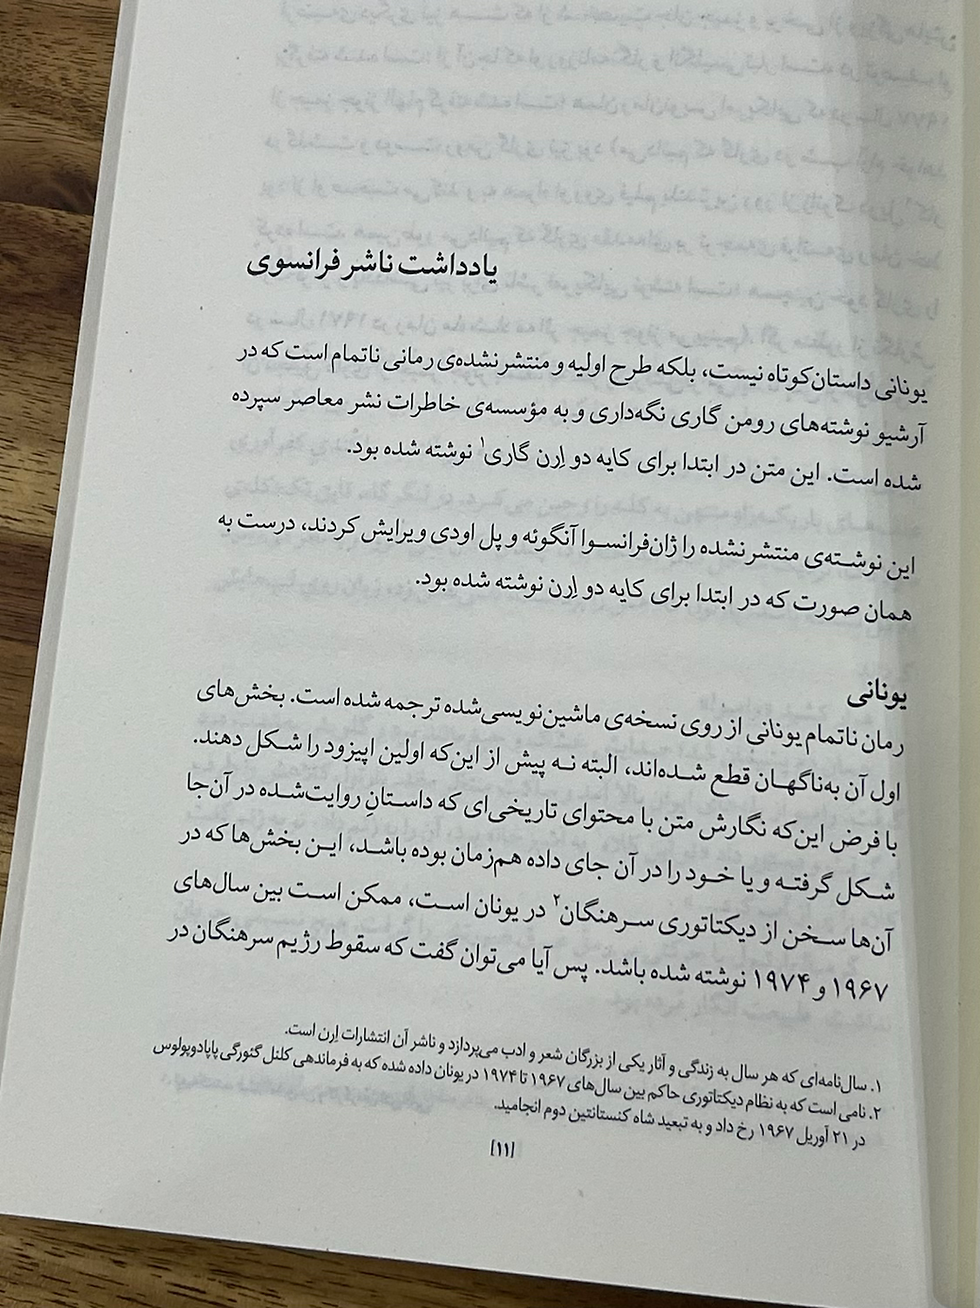 یادداشت ناشر فرانسوی
یونانی داستان‌کوتاه نیست، بلکه طرح اولیه و منتشرنشده‌ی رمانی ناتمام است که در
آرشیو نوشته‌های رومن گاری نگه‌داری و به مؤسسه‌ی خاطرات نشر معاصر سپرده
شده است. این متن در ابتدا برای کایه دو اِرن گاری۱ نوشته شده بود.
این نوشته‌ی منتشرنشده را ژان‌فرانسوا آنگوئه و پل اودی ویرایش کردند، درست به
همان صورت که در ابتدا برای کایه دو اِرن نوشته شده بود.
یونانی
رمان ناتمام یونانی از روی نسخه‌ی ماشین‌نویسی‌شده ترجمه شده است. بخش‌های
اول آن به‌ناگهان قطع شده‌اند، البته نه پیش از این‌که اولین اپیزود را شکل دهند.
با فرض این‌که نگارش متن با محتوای تاریخی‌ای که داستانِ روایت‌شده در آن‌جا
شکل گرفته و یا خود را در آن جای داده هم‌زمان بوده باشد، این بخش‌ها که در
آن‌ها سخن از دیکتاتوری سرهنگان۲ در یونان است، ممکن است بین سال‌های
۱۹۶۷ و ۱۹۷۴ نوشته شده باشد. پس آیا می‌توان گفت که سقوط رژیم سرهنگان در
۱. سال‌نامه‌ای که هر سال به زندگی و آثار یکی از بزرگان شعر و ادب می‌پردازد و ناشر آن انتشارات اِرن است.
۲. نامی است که به نظام دیکتاتوری حاکم بین سال‌های ۱۹۶۷ تا ۱۹۷۴ در یونان داده شده که به فرماندهی کلنل گئورگی پاپادوپولوس
در ۲۱ آوریل ۱۹۶۷ رخ داد و به تبعید شاه کنستانتین دوم انجامید.
[۱۱]